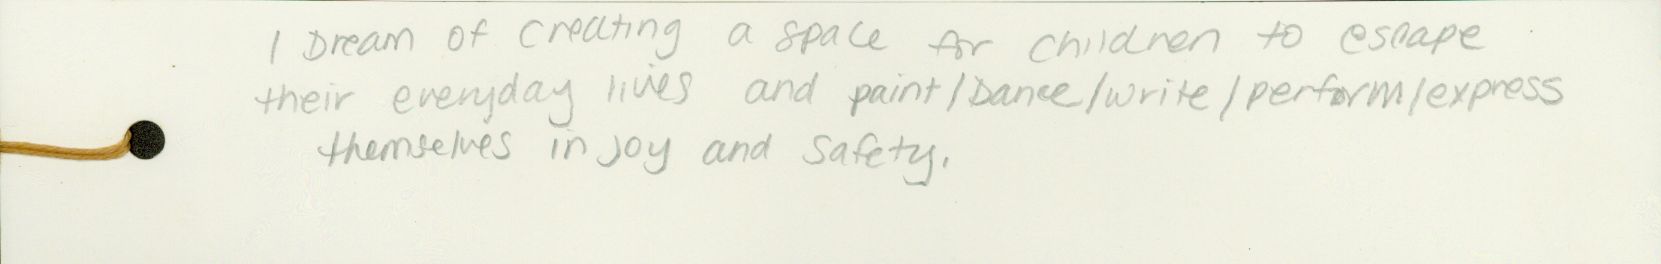 I Dream of creating a space for children to escape
their everyday lives and paint/Dance/write/perform/express
themselves in joy and safety.